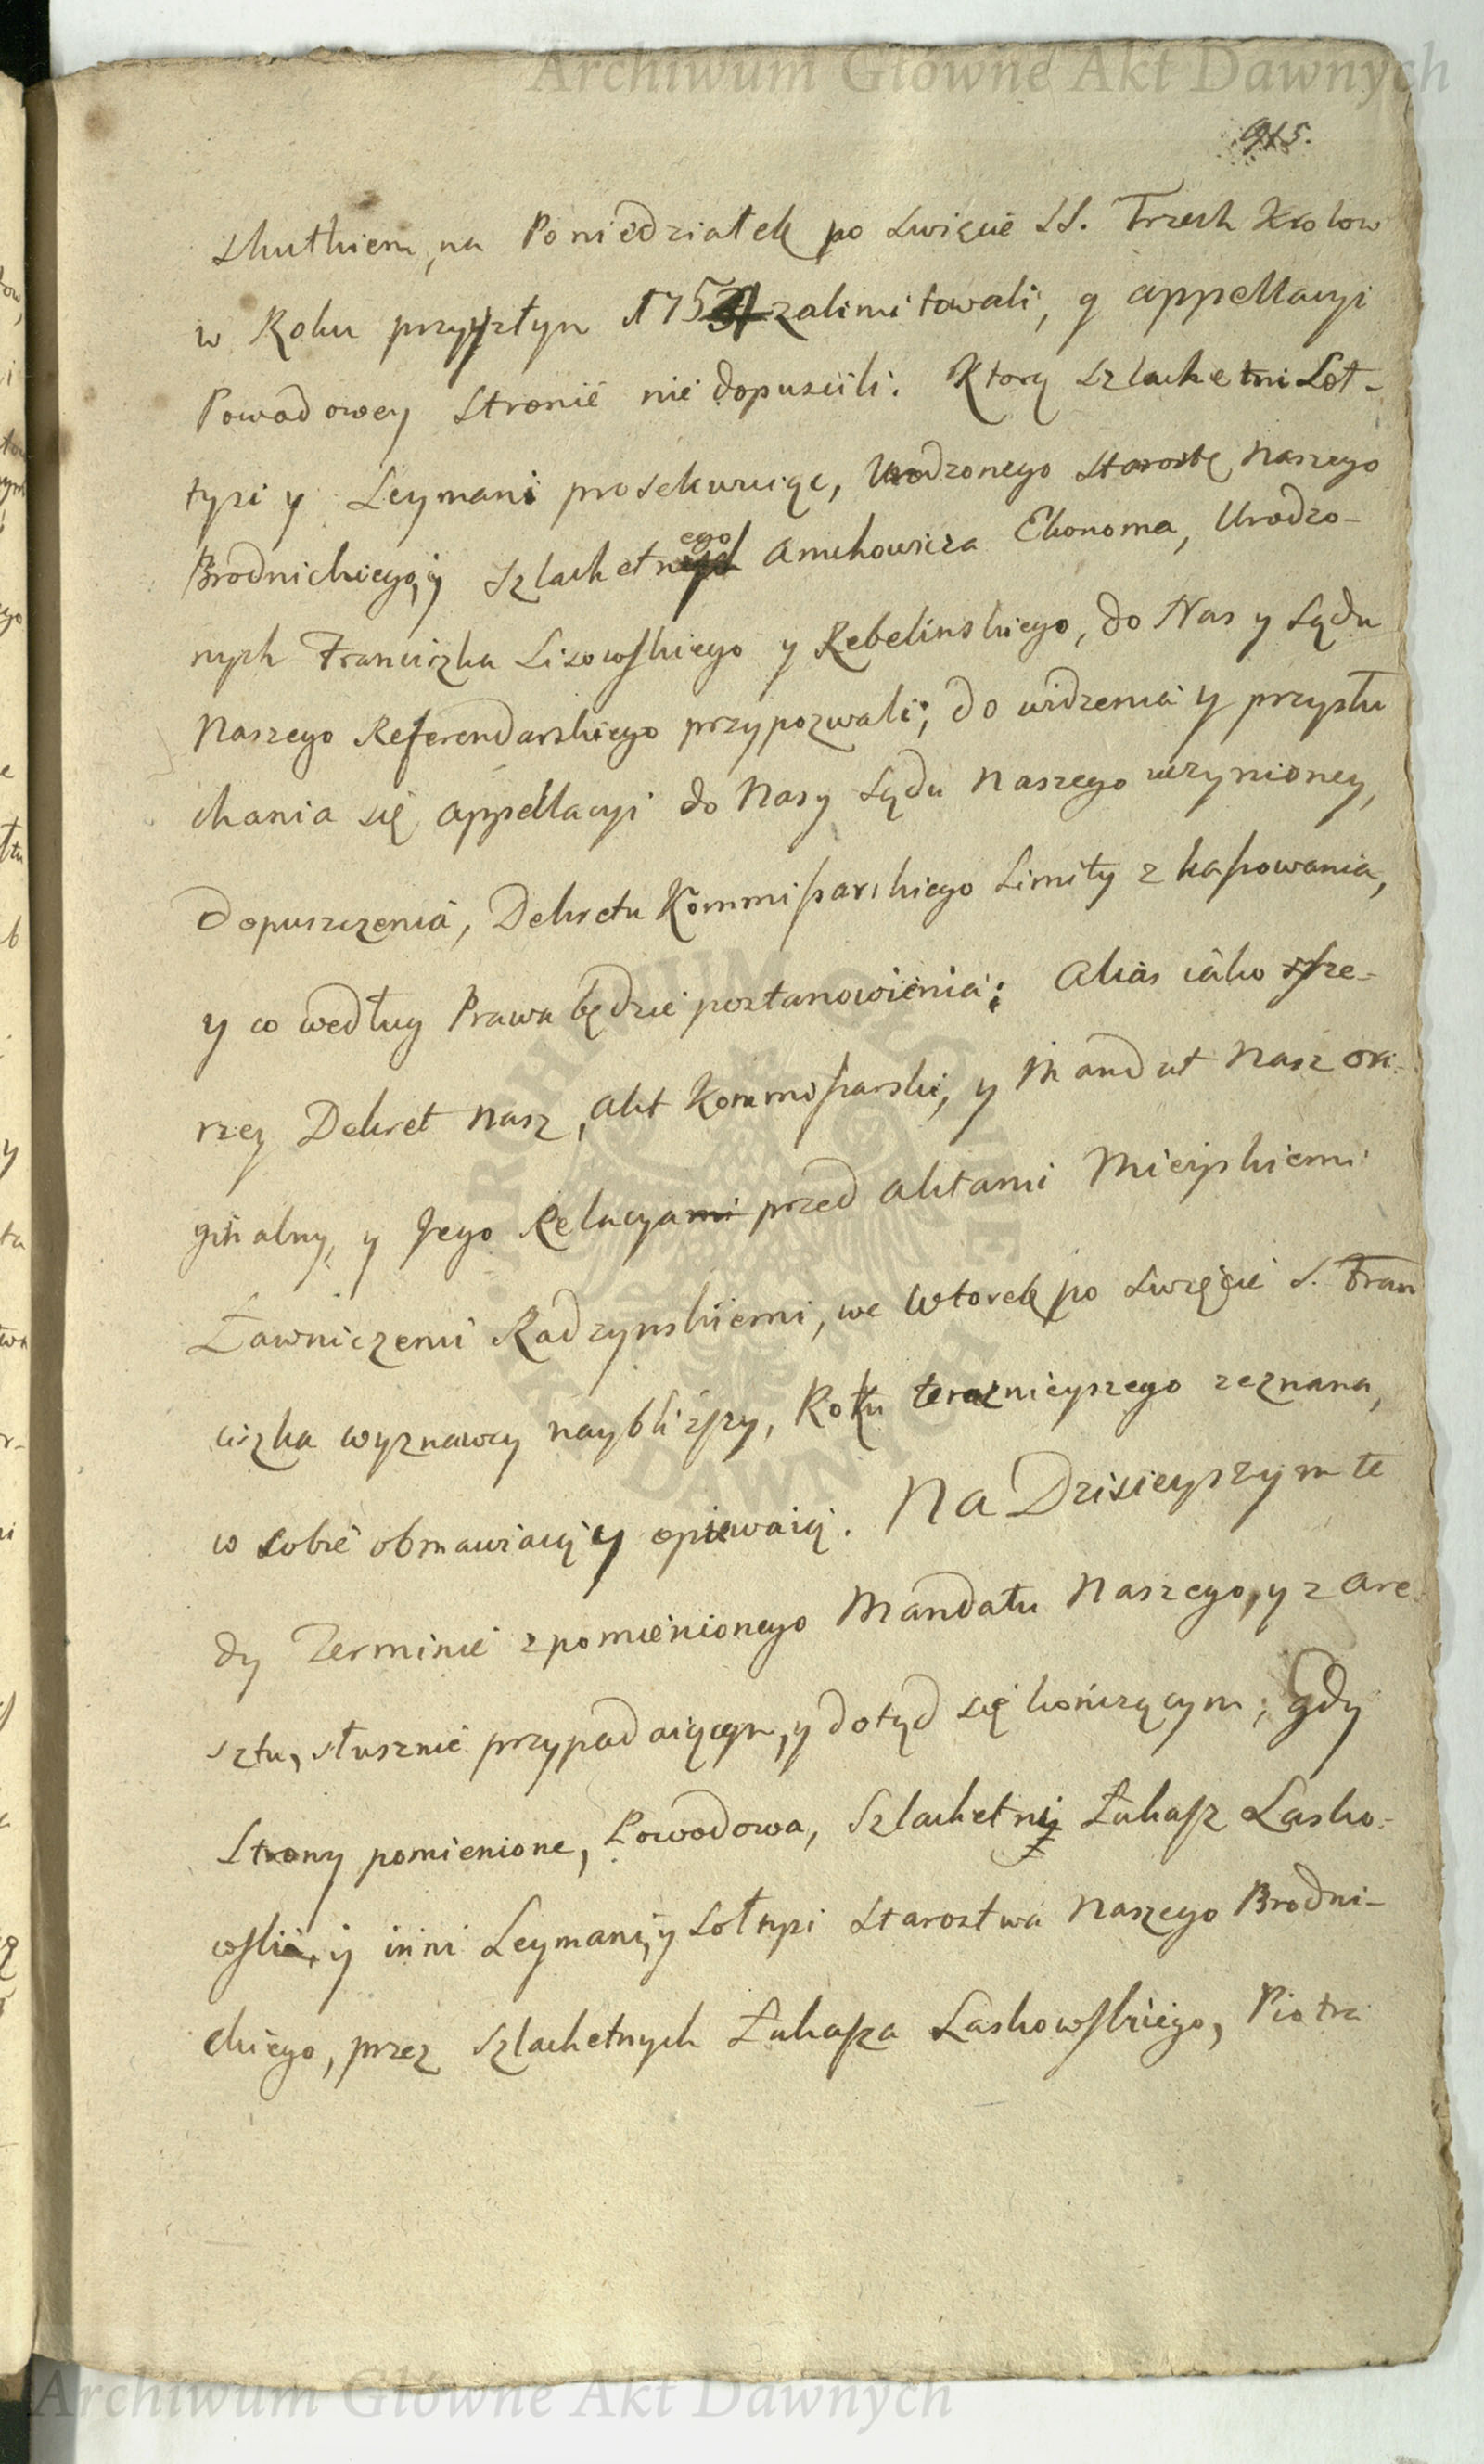 Archiwum Główne Akt Dawnych
915.
skutkiem, na Poniedziałek po Swięcie SS. Trzech Krolow
w Roku przyszłym 175 zalimitowali, y appellacyi
Powodowey Stronie nie dopuscili. Ktorą szlachetni Soł-
tysi y Leymani prosekwuiąc, Urodzonego Starostę Naszego
Brodnickiego, y Szlachetnego Ekonoma, Urodzo-
nych Franciszka Lisowskiego y Rebelinskiego, do Nas y Sądu
Naszego Referendarskiego przypozwali; do widzenia y przysłu
chania się appellacyi do Nas y Sądu Naszego uczynioney,
Dopuszczenia, Dekretu Kommissarskiego Limity zkassowania,
y co według Prawa będzie postanowienia; alias iáko sze-
rzey Dekret Nasz, akt Kommissarski, y Mandat Nasz ori-
ginalny, y Jego Relacya przed aktami Mieyskiemi
Ławniczemi Radzynskiemi, we Wtorek po Swięcie S. Fran
ciszka wyznawcy nayblizszy, Roku teraznieyszego zeznana,
w sobie obmawiaią y opiewaią. Na Dzisieyszym te
dy Terminie zpomienionego Mandatu Naszego, y z are-
sztu, słusznie przypadaiącym, y dotąd się kończącym, Gdy
Strony pomienione, Powodowa, Szlachetni Łukasz Lasko-
wski, y inni Leymani, y Sołtysi Starostwa Naszego Brodni-
ckiego, przez Szlachetnych Łukasza Laskowskiego, Piotra
Archiwum Główne Akt Dawnych